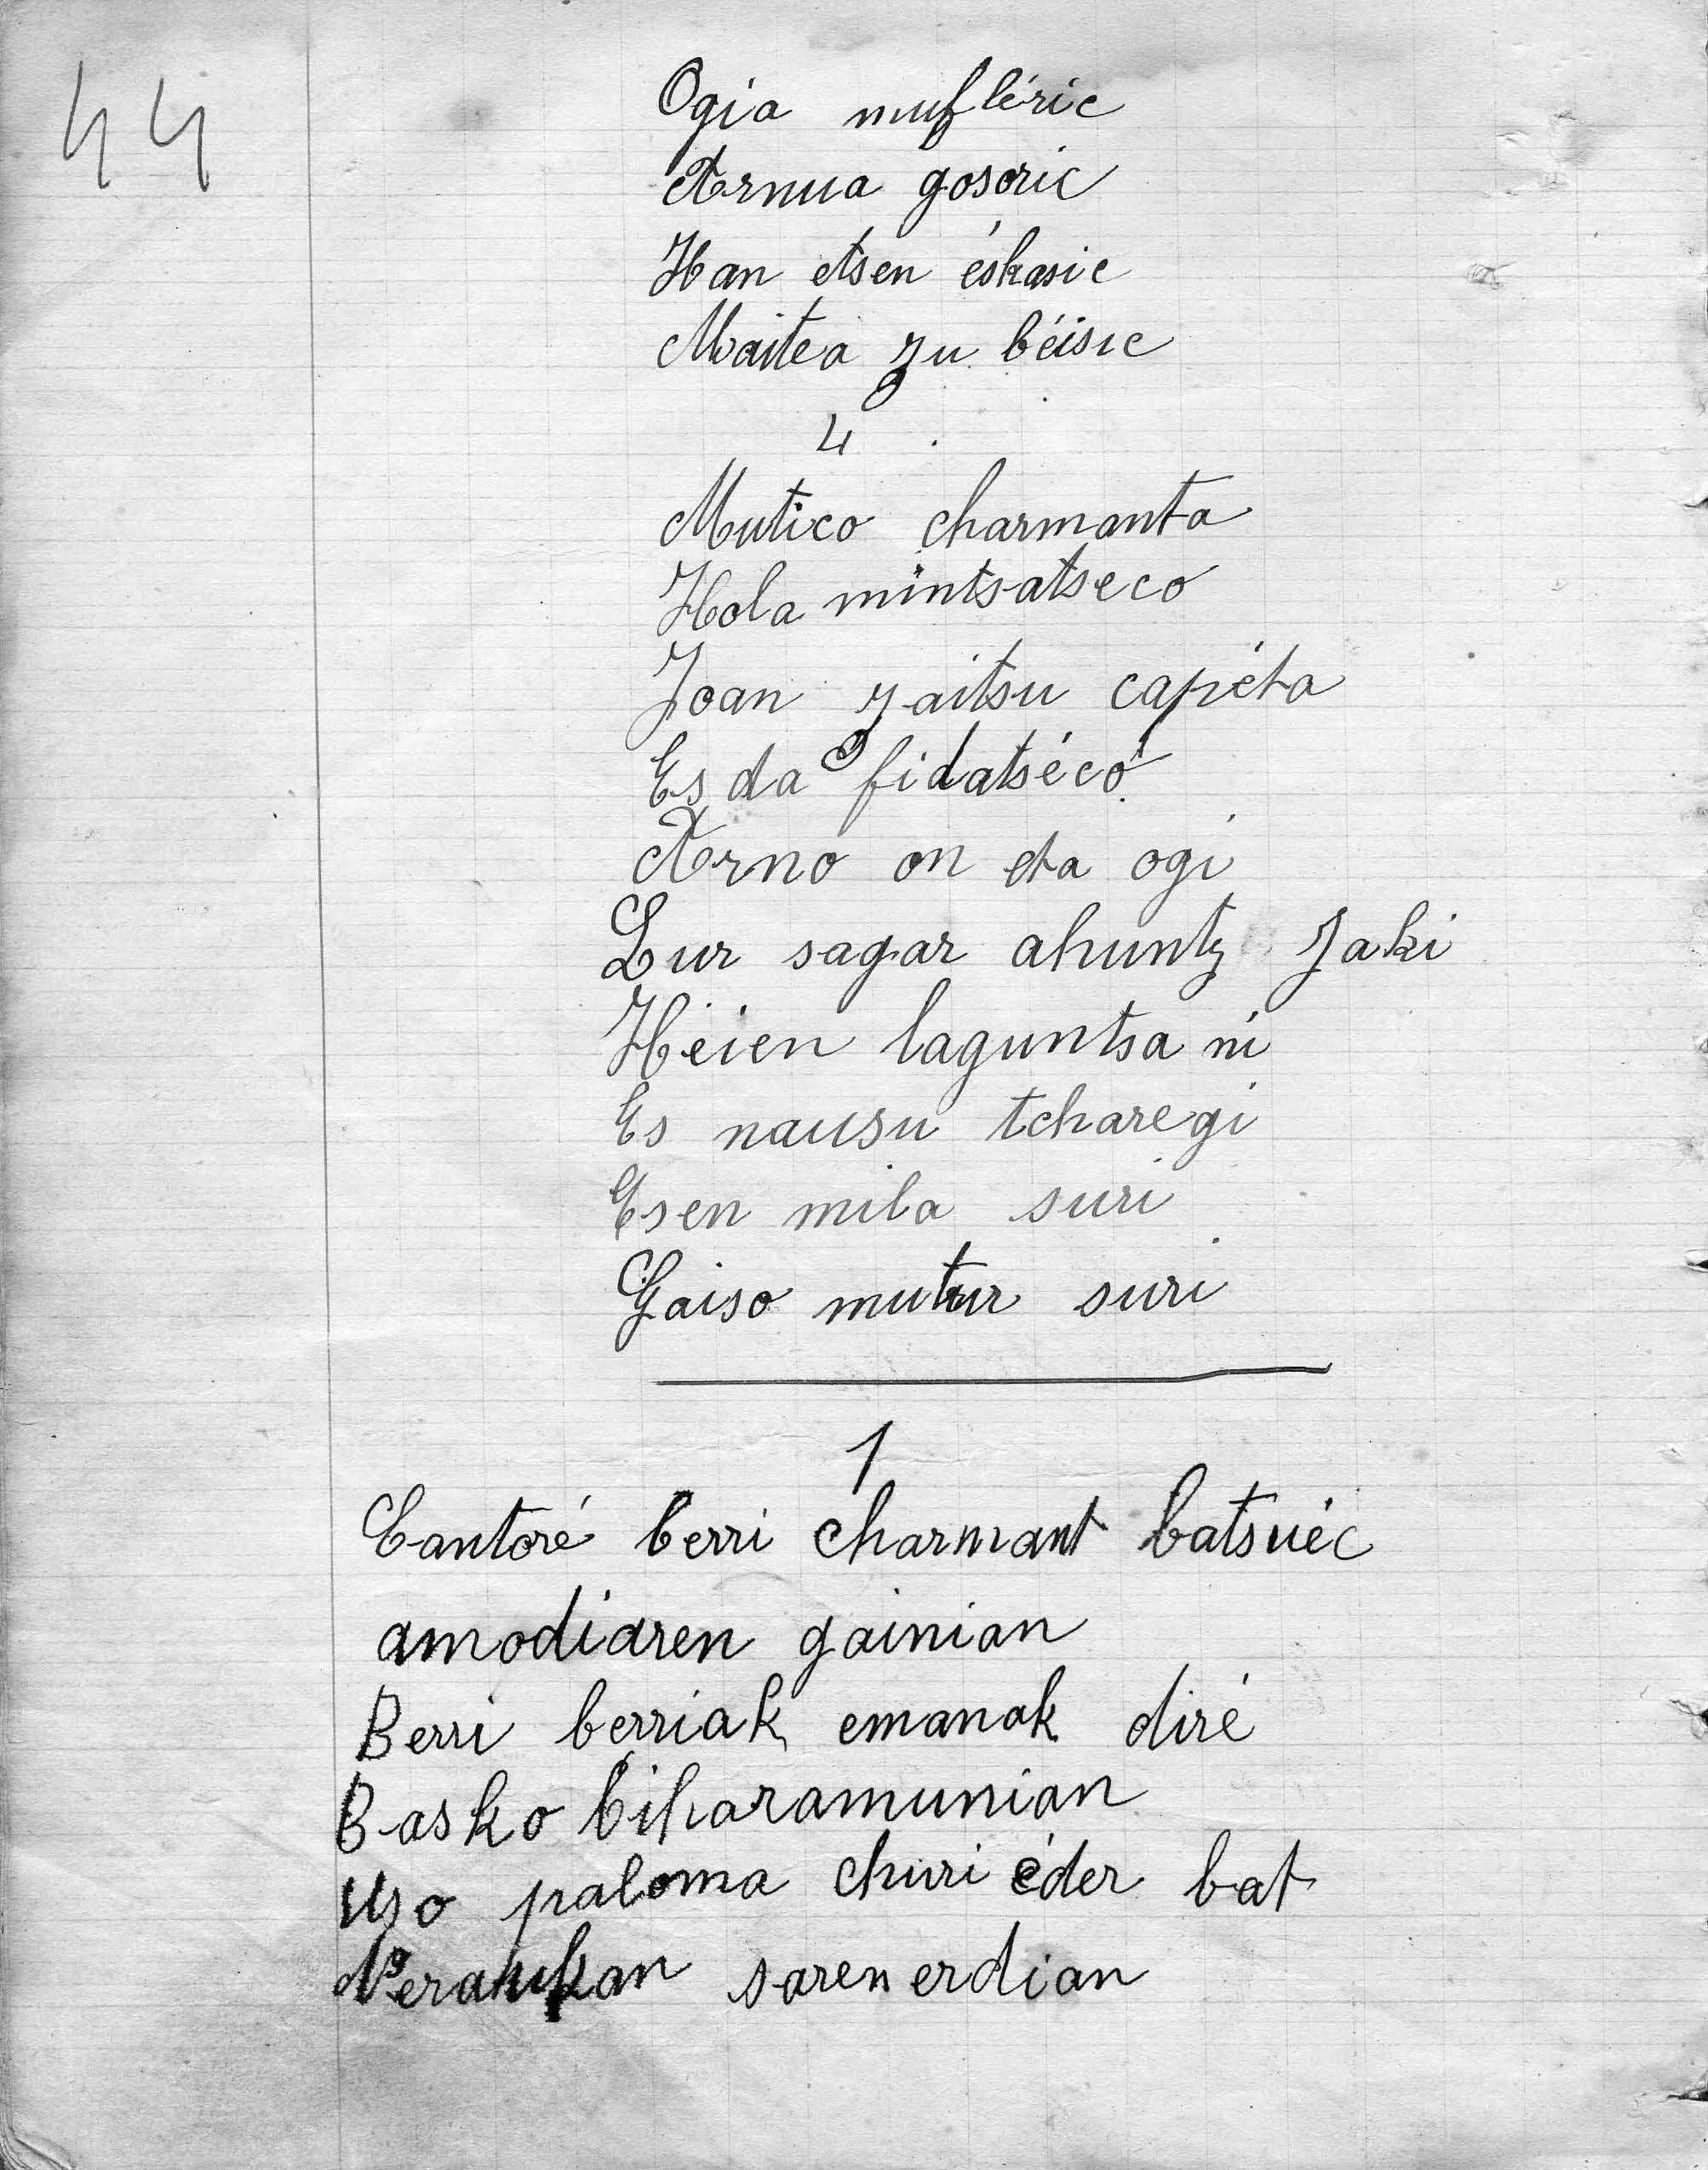 44
Ogia mufléric
Arnua gosoric
Han etsen éskasic
Maitea zu béisic
4
Mutico charmanta
Hola mintsatseco
Joan zaitsu capéta
Es da fidatséco
Arno on eta ogi
Lur sagar ahuntz jaki
Heien laguntsa ni
Es nausu tcharegi
Esen mila suri
Gaiso mutur suri
1
Cantoré berri charmant batsuéc
amodiaren gainian
Berri berriak emanak diré
Basko biharamunian
Uso paloma churi éder bat
saren erdian